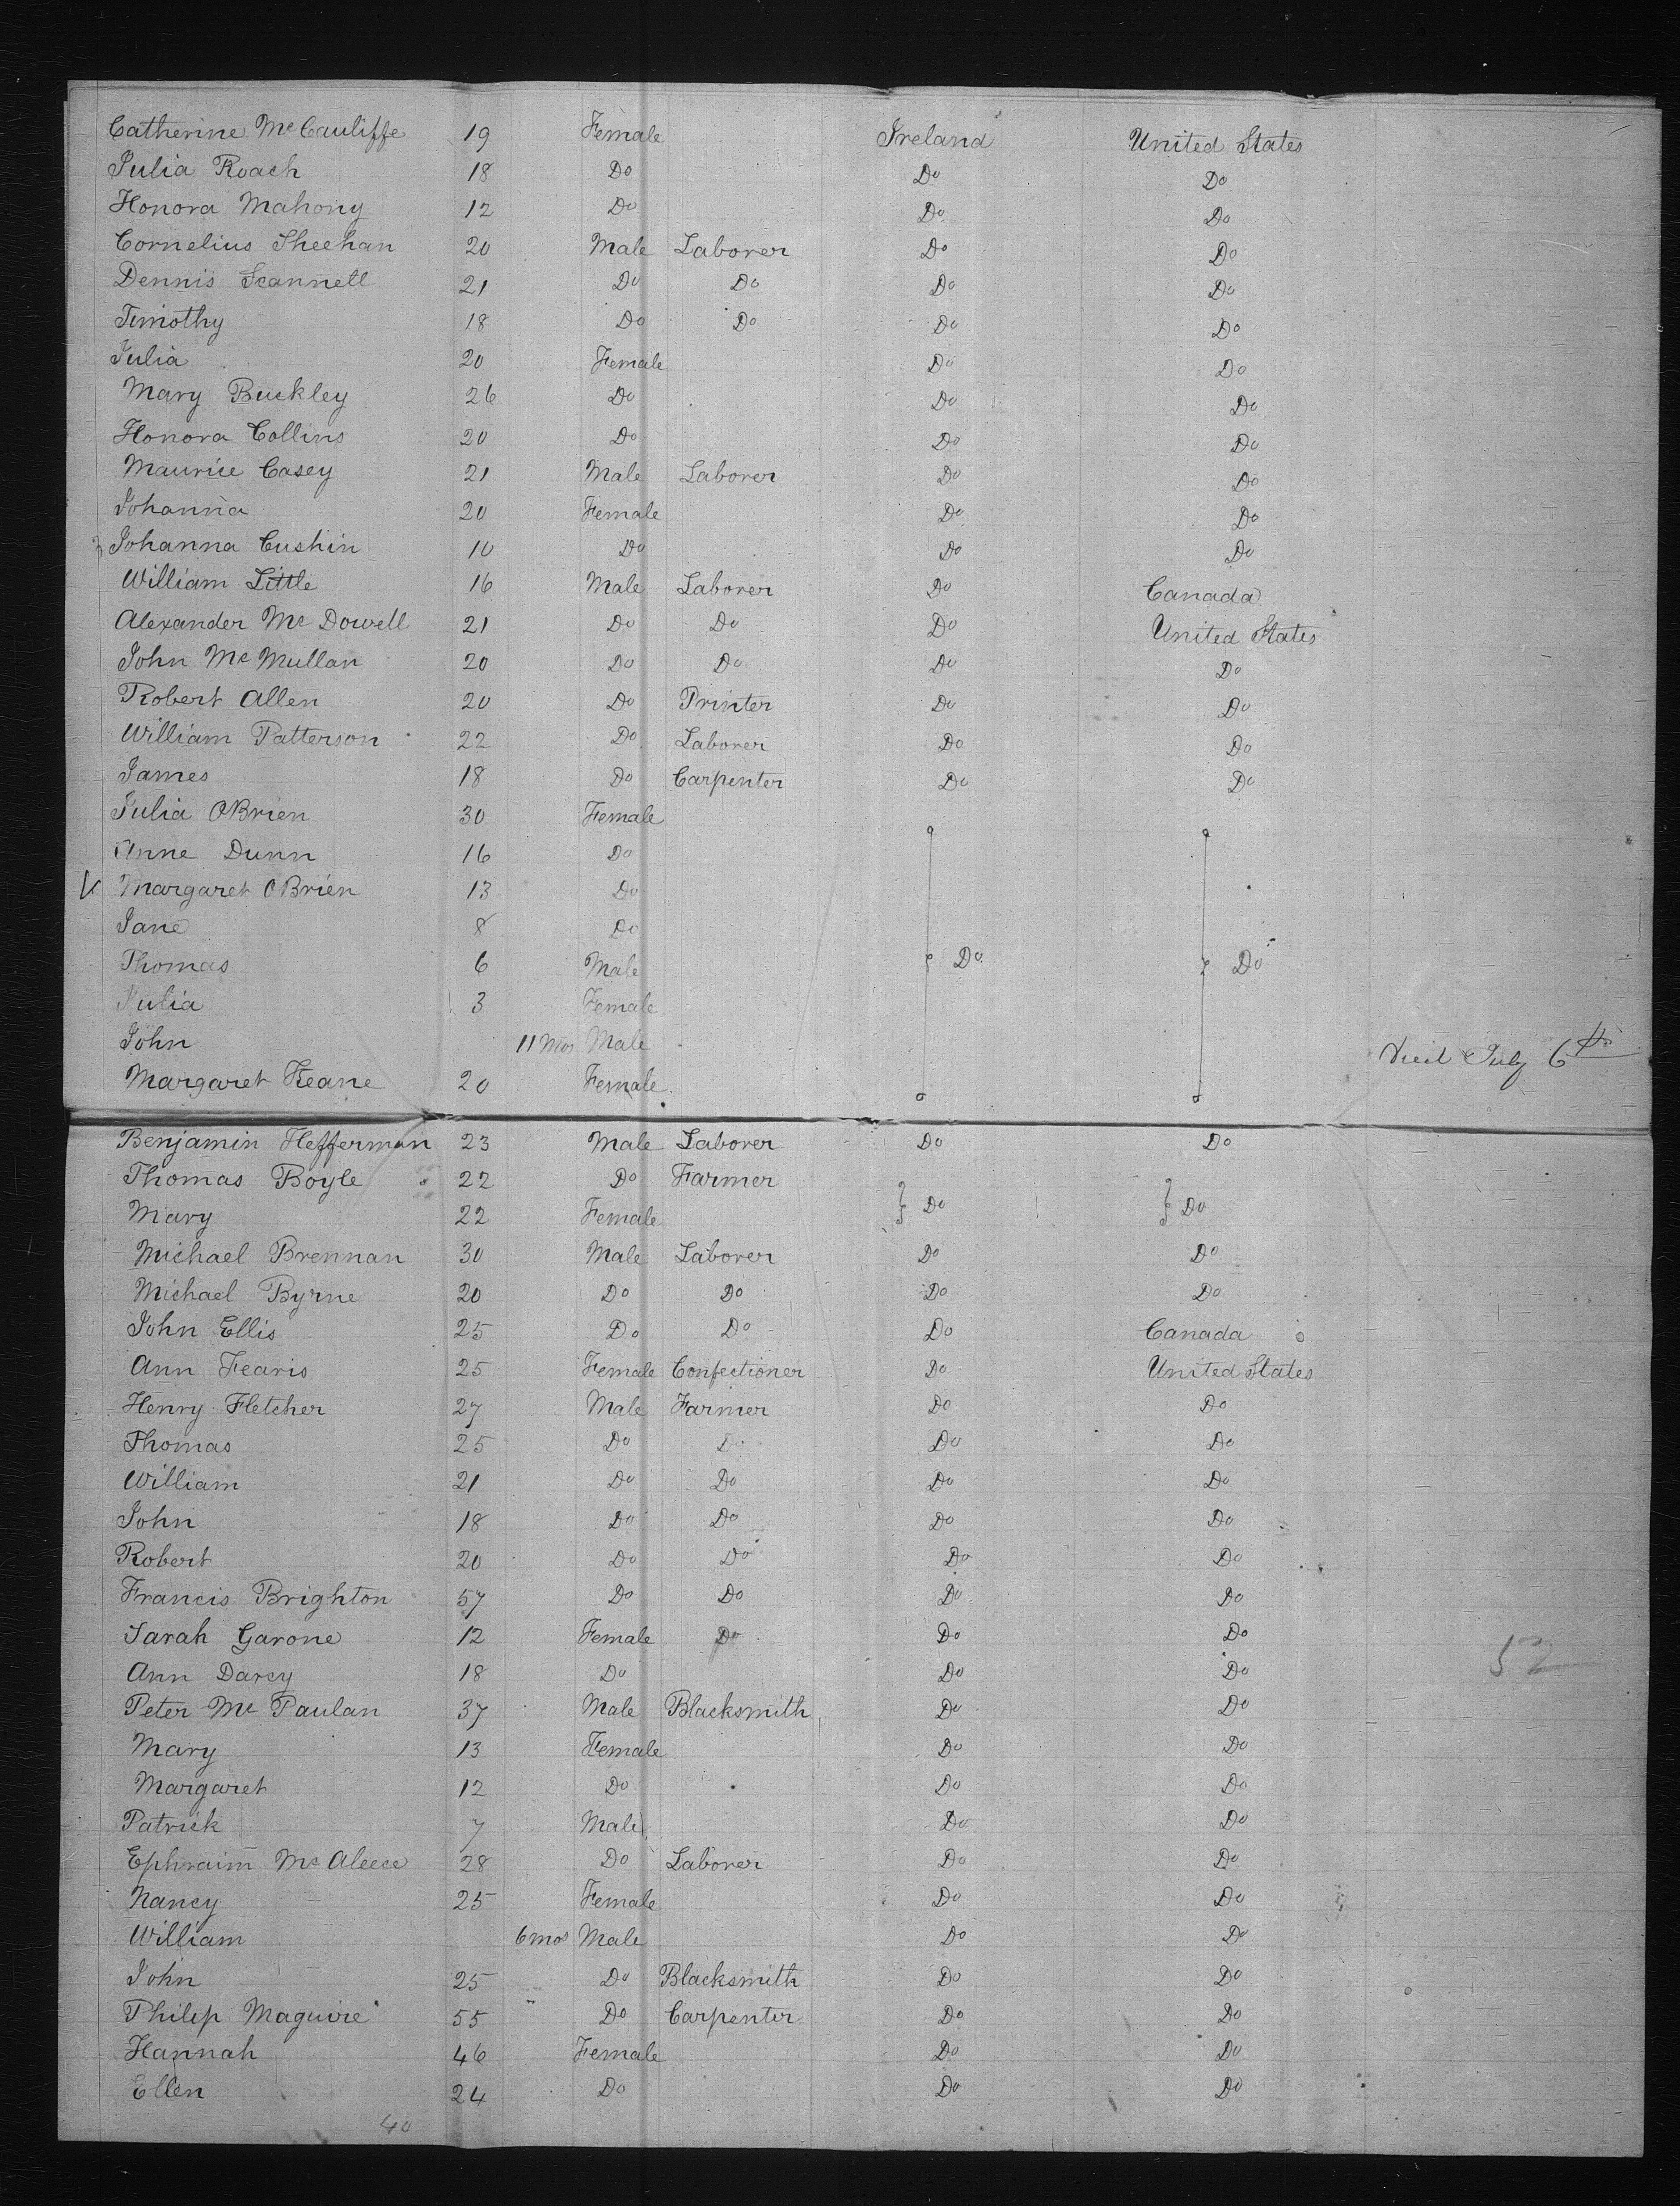 Catherine McCauliffe 19 Female Ireland United States
Julia Roach 18 Do Do Do
Honora Mahony 12 Do Do Do
Cornelius Sheehan 20 Male Laborer Do Do
Dennis Scannell 21 Do Do Do Do
Timothy 18 Do Do Do Do
Julia 20 Female Do Do
Mary Buckley 26 Do Do Do
Honora Collins 20 Do Do Do
Maurice Casey 21 Male Laborer Do Do
Johanna 20 Female Do Do
Johanna Cushin 10 Do Do Do
William Little 16 Male Laborer Do Canada
Alexander McDowell 21 Do Do Do United States
John McMullan 20 Do Do Do Do
Robert Allen 20 Do Printer Do Do
William Patterson 22 Do Laborer Do Do
James 18 Do Carpenter Do Do
Julia OBrien 30 Female
Anne Dunn 16 Do
Margaret OBrien 13 Do
Jane 8 Do
Thomas 6 Male Do Do
Julia 3 Female
John 11 mos Male Died July 6th
Margaret Keane 20 Female
Benjamin Hefferman 23 Male Laborer Do Do
Thomas Boyle 22 Do Farmer
Mary 22 Female } Do } Do
Michael Brennan 30 Male Laborer Do Do
Michael Byrne 20 Do Do Do Do
John Ellis 25 Do Do Do Canada
Ann Fearis 25 Female Confectioner Do United States
Henry Fletcher 27 Male Farmer Do Do
Thomas 25 Do Do Do Do
William 21 Do Do Do Do
John 18 Do Do Do Do
Robert 20 Do Do Do Do
Francis Brighton 57 Do Do Do Do
Sarah Garone 12 Female Do Do Do
Ann Darcy 18 Do Do Do
52
Peter McPaulan 37 Male Blacksmith Do Do
Mary 13 Female Do Do
Margaret 12 Do Do Do
Patrick 7 Male Do Do
Ephraim McAleece 28 Do Laborer Do Do
Nancy 25 Female Do Do
William 6 mos Male Do Do
John 25 Do Blacksmith Do Do
Philip Maguire 55 Do Carpenter Do Do
Hannah 46 Female Do Do
Ellen 24 Do Do Do
40